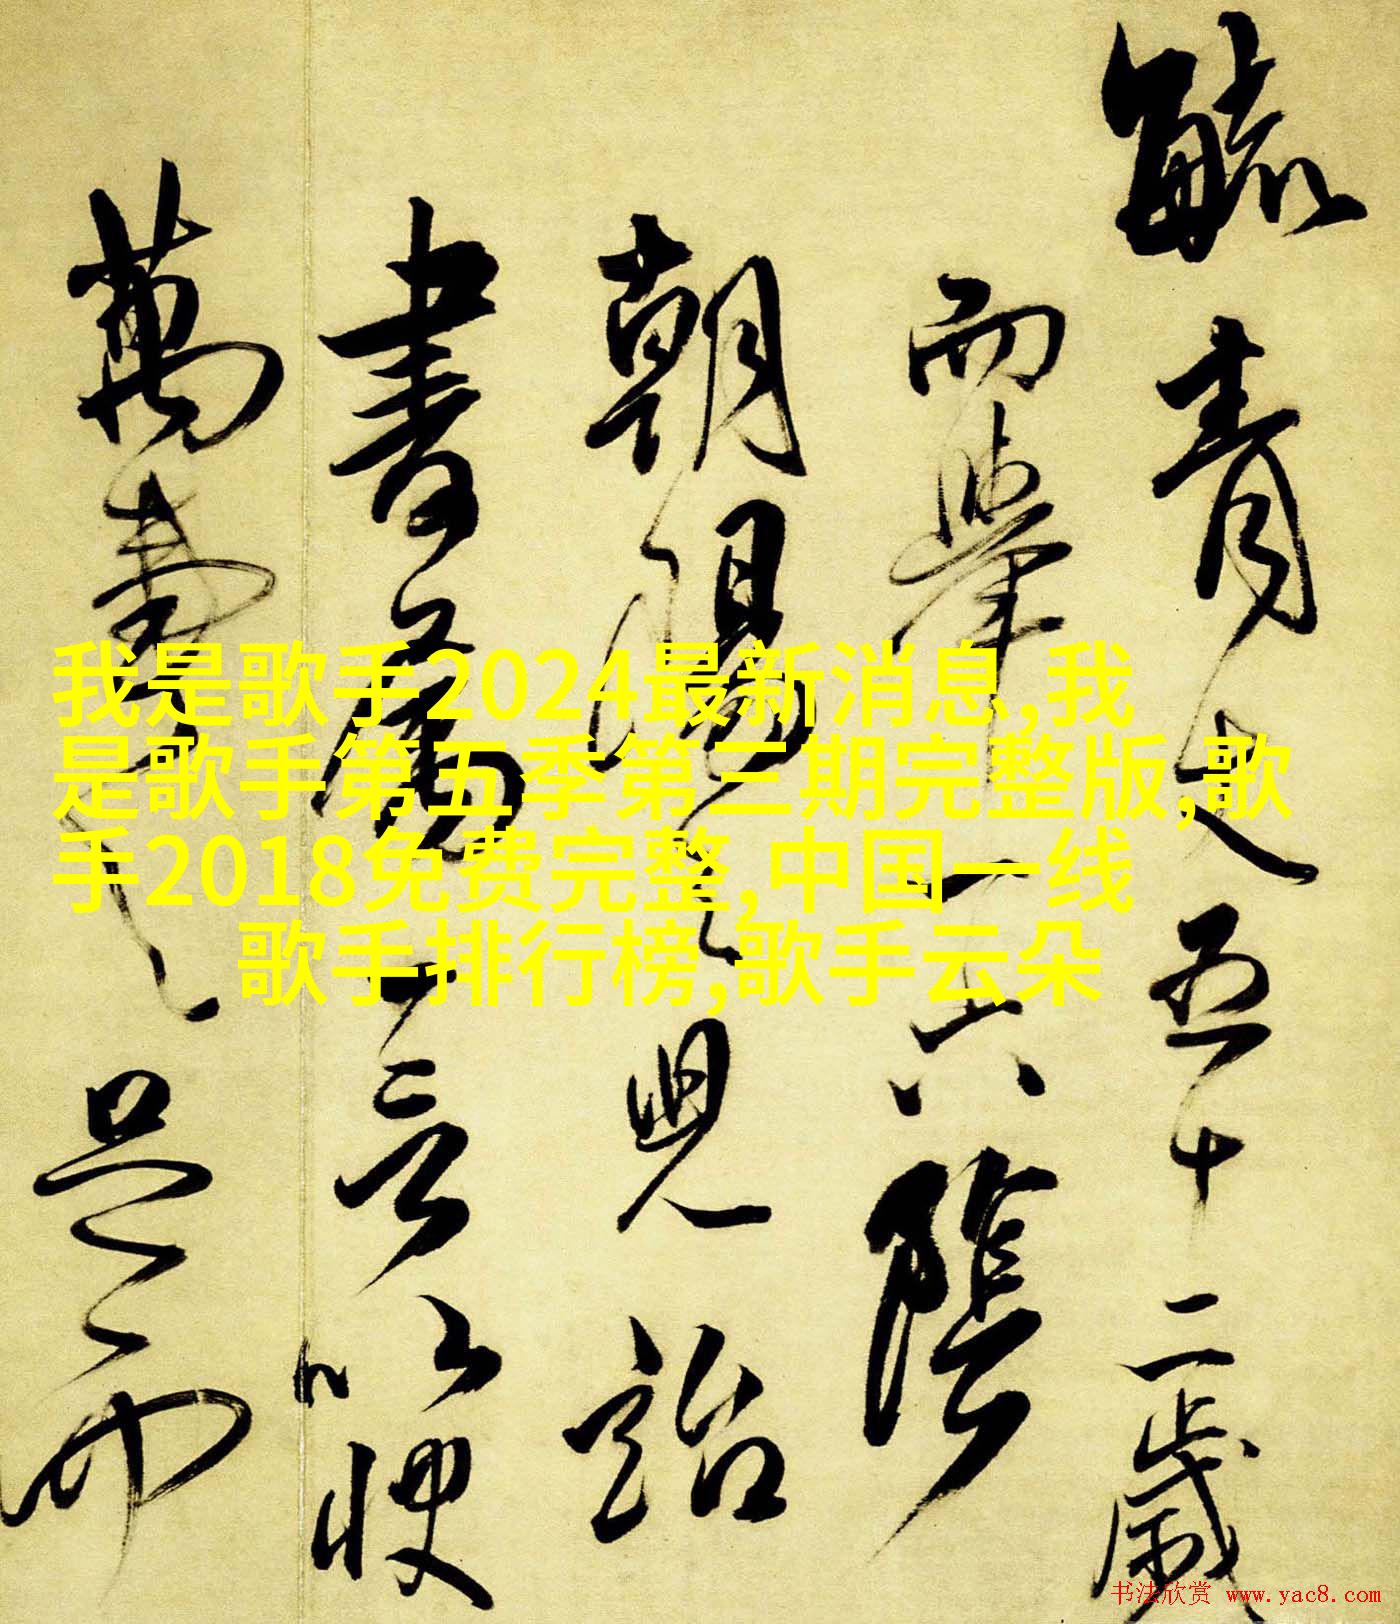 毓青丈五十二歲
而舉丁六陰
朝陽之見詒
書屬言以梗
萬壽
是而
我是歌手2024最新消息,我
是歌手第五季第三期完整版,歌
手2018免费完整,中国一线
歌手排行榜,歌手云朵
书法欣赏 www.yac8.com